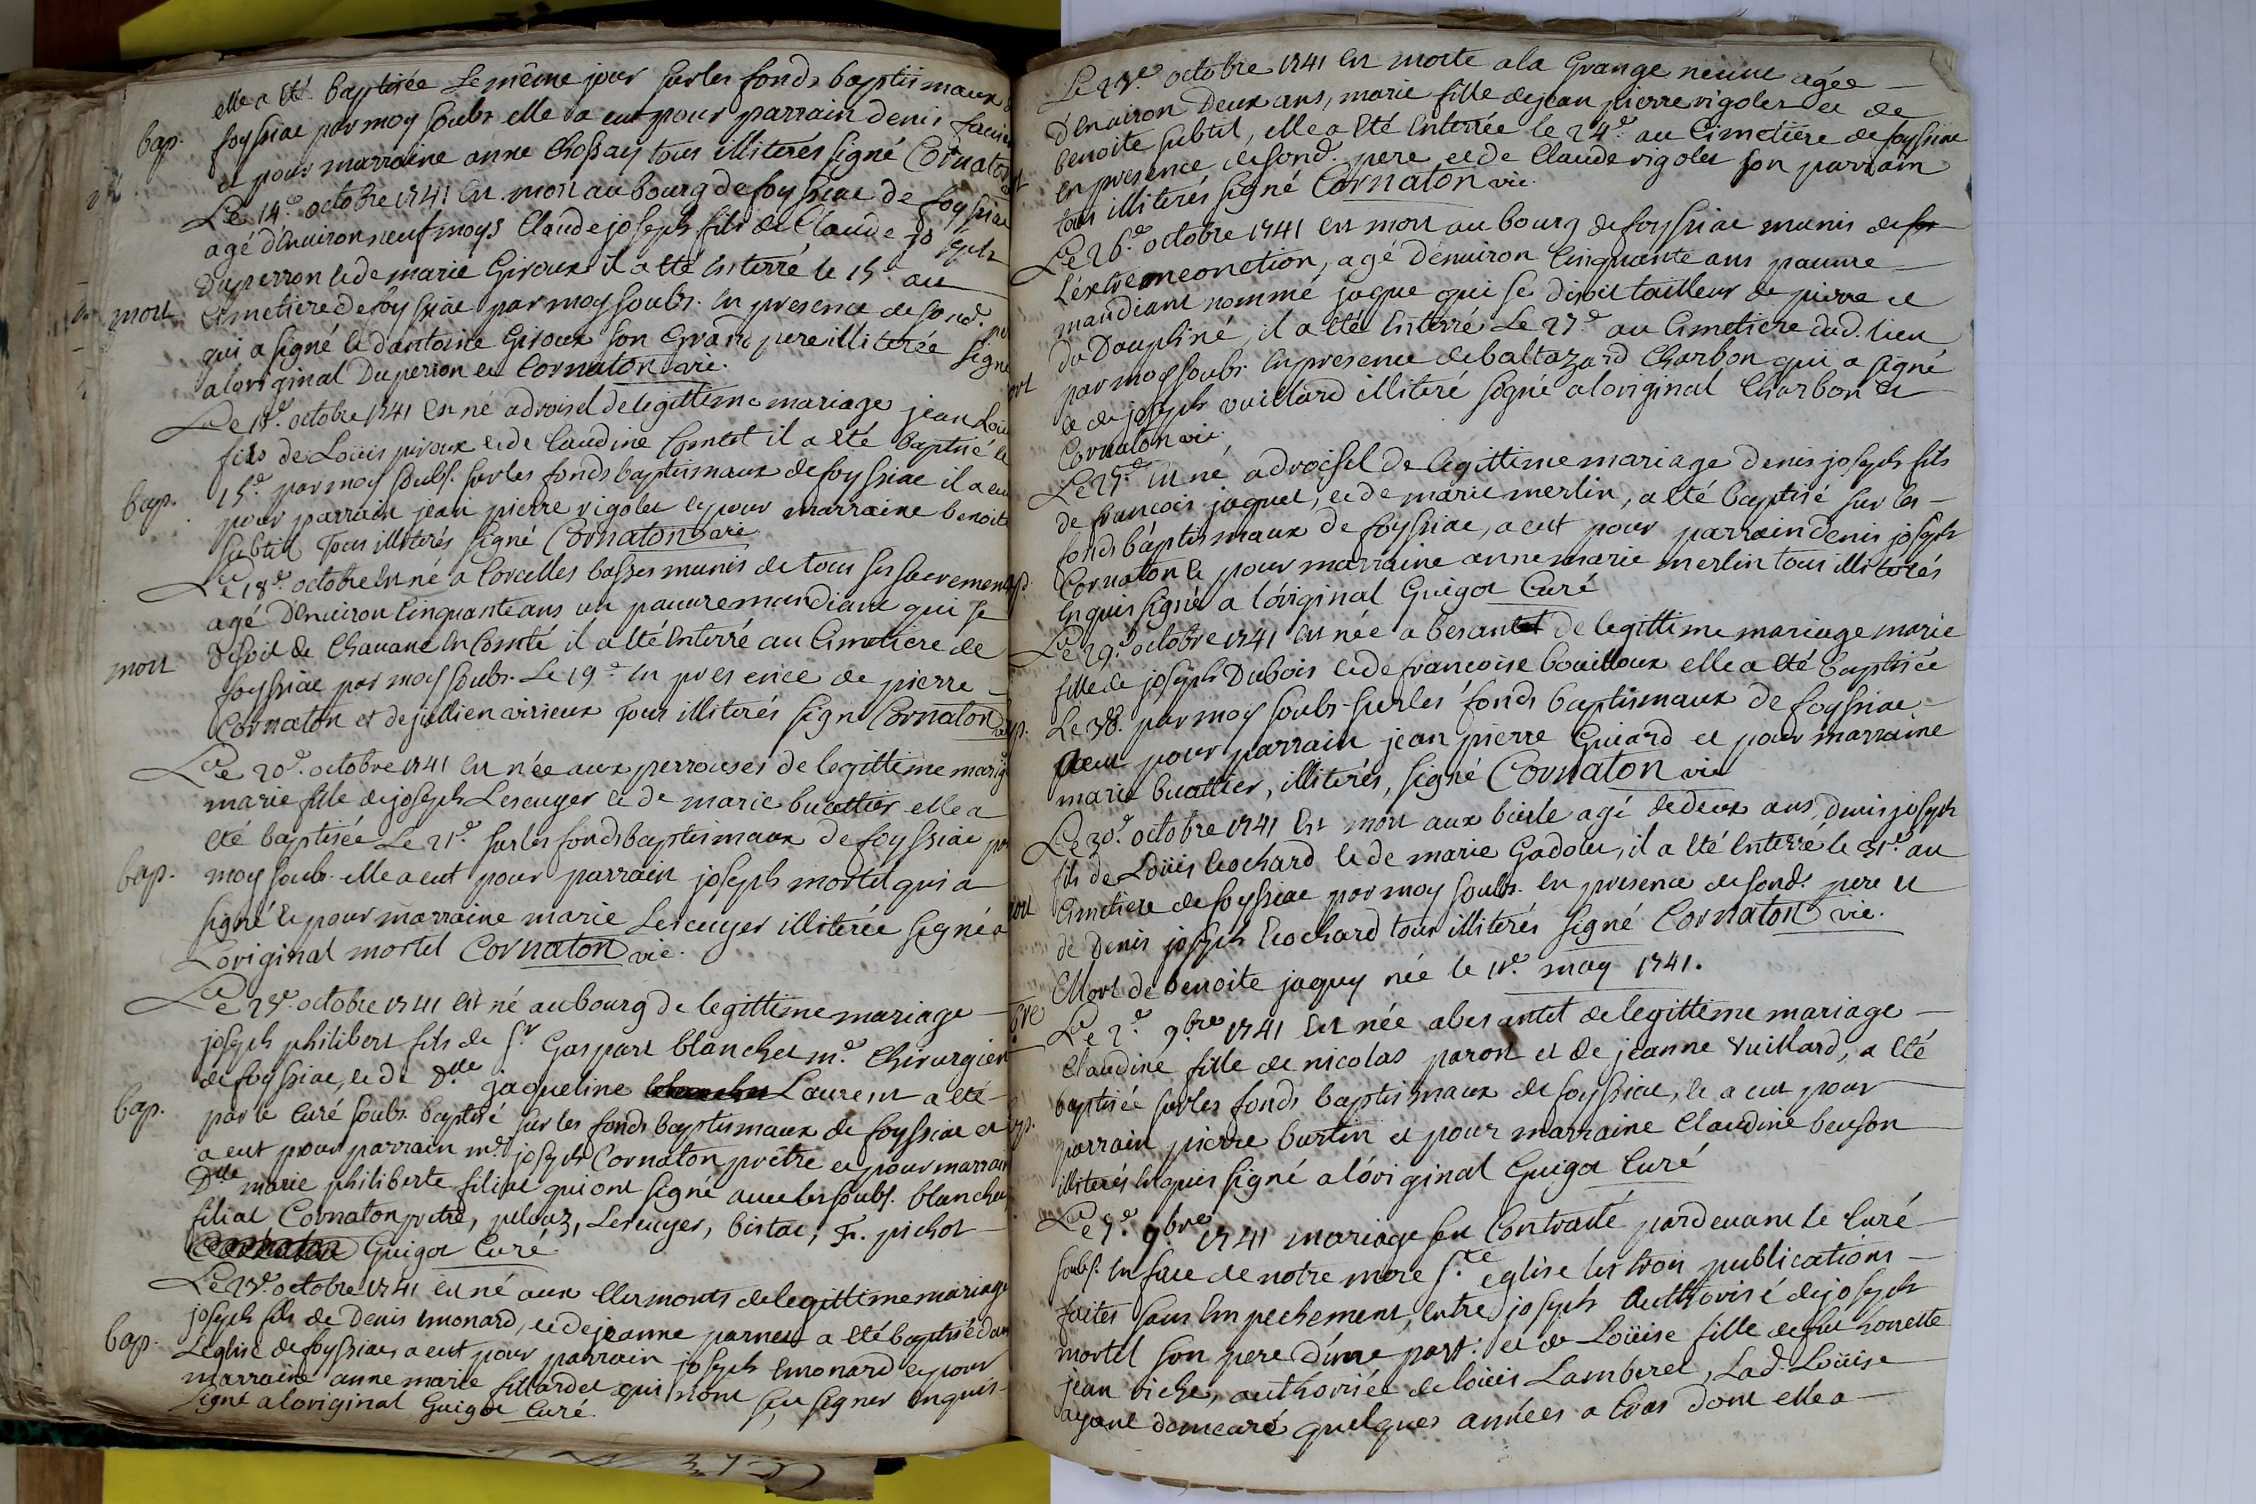 elle a été baptisée le même jour sur les fonds baptismaux de
bap. foyssiac par moy soubs. elle a eut pour parrain denis
et pour marraine anne Chossay tous illiterés signé Cornaton
Le 14e. octobre 1741 est mort au bourg de foyssiac de foyssiac
agé d'enuiron neuf moys Claude joseph fils de Claude joseph
Duperron et de marie Giroux il a été enterré le 15e au
mort cimetiere de foyssiac par moy soubs. en presence de sond. pere
qui a signé et d'antoine Giroux son Grand pere illiterée signé
a loriginal Duperion et Cornaton vic.
Le 15e. octobre 1741 est né adroisel de legittime mariage jean Loüis
fils de Loüis piroux et de Claudine Comtet il a été baptisé le
bap. 15e. par moy soubs. sur les fonds baptismaux de foyssiac il a eu
pour parrain jean pierre rigolet et pour marraine benoite
subtil Tous illiterés signé Cornaton vic
Le 18e. octobre est né a Corcelles basses munis de tous ses sacremens
agé d'enuiron Cinquante ans un pauure mandiant qui se
disoit de Chauane en Comté il a été enterré au Cimetiere de
mort foyssiac par moy soubs. Le 19e en presence de pierre
Cornaton et de jullien virieux Tous illiterés signé Cornaton vic
Le 20e. octobre 1741 est née aux perrouses de legittime mariage
marie fille de joseph Lescuyer et de marie buattier elle a
été baptisée Le 21e. sur les fonds baptismaux de foyssiac par
bap. moy soub. elle a eut pour parrain joseph mortel qui a
signé et pour marraine marie Lescuyer illiterée signé a
Loriginal mortel Cornaton vic.
Le 23e. octobre 1741 est né au bourg de legittime mariage
joseph philibert fils de Sr. Gaspart blanchet me. Chirurgien
de foyssiac, et de dlle jaqueline Laurent a été
bap. par le Curé soubs. baptisé sur les fonds baptismaux de foyssiac et
a eut pour parrain mr. joseph Cornaton prêtre et pour marraine
Dlle marie philiberte filiat qui ont signé auec les soubs. blanchet,
filiat Cornaton prêtre, pelouz, Lescuyer, bistac, Fr. pichot
Guigot Curé
Le 23e. octobre 1741 est né aux Clermonts de legittime mariage
joseph fils de Denis emonard, et de jeanne parnet a été baptisé dans
bap. L'eglise de foyssiac, a eut pour parrain joseph emonard et pour
marraine anne marie fillardet qui n'ont sçu signer enquis
signé a loriginal Guigot Curé
Le 23e. octobre 1741 est morte a la Grange neuue agée
d'enuiron Deux ans, marie fille de jean pierre rigolet et de
benoite subtil, elle a été enterrée le 24e. au Cimetiere de foyssiac
en presence de sond. pere et de Claude rigolet son parrain
tous illiterés signé Cornaton vic.
Le 26e. octobre 1741 est mort au bourg de foyssiac munis de
L'extremeonction, agé d'enuiron Cinquante ans pauure
mandiant nommé jaque qui se disoit tailleur de pierre et
du Dauphiné, il a été enterré Le 27e au Cimetiere dud. lieu
par moy soubs. en presence de baltazard Charbon qui a signé
et de joseph vuillard illiteré signé a loriginal Charbon et
Cornaton vic.
Le 27e. est né adroisel de legittime mariage denis joseph fils
de francois jaquet, et de marie merlin, a été baptisé sur les
fonds baptismaux de foyssiac, a eut pour parrain denis joseph
Cornaton et pour marraine anne marie merlin tous illiterés
enquis signé a l'original Guigot Curé
Le 29e. octobre 1741 est née a besantet de legittime mariage marie
fille de joseph Dubois et de francoise bouilloux elle a été baptisée
Le 30. par moy soubs. sur les fonds baptismaux de foyssiac
a eut pour parrain jean pierre Guiard et pour marraine
marie buattier, illiterés, signé Cornaton vic
Le 30e. octobre 1741 est mort aux biolle agé de deux ans, denis joseph
fils de Loüis Cochard et de marie Gadolet, il a été enterré le 31e. au
Cimetiere de foyssiac par moy soubs. en presence de sond. pere et
de Denis joseph Cochard tous illiterés signé Cornaton vic.
Mort de benoite jaquy née le 11e. may 1741.
Le 2e. 9bre 1741 est née abesantet de legittime mariage
Claudine fille de nicolas paron et de jeanne Vuillard, a été
baptisée sur les fonds baptismaux de foyssiac, et a eut pour
parrain pierre burtin et pour marraine Claudine beuson
illiterés enquis signé a l'original Guigot Curé
Le 7e. 9bre 1741 mariage fut Contracté pardeuant le Curé
soubs. en face de notre mere Ste eglise les trois publications
faites sans empechement, entre joseph Authorisé de joseph
mortel son pere d'une part: et de Loüise fille de fut honette
jean viche, authorisée de loüis Lamberet, Lad. Loüise
ayant demeuré quelques années a Cras dont elle a